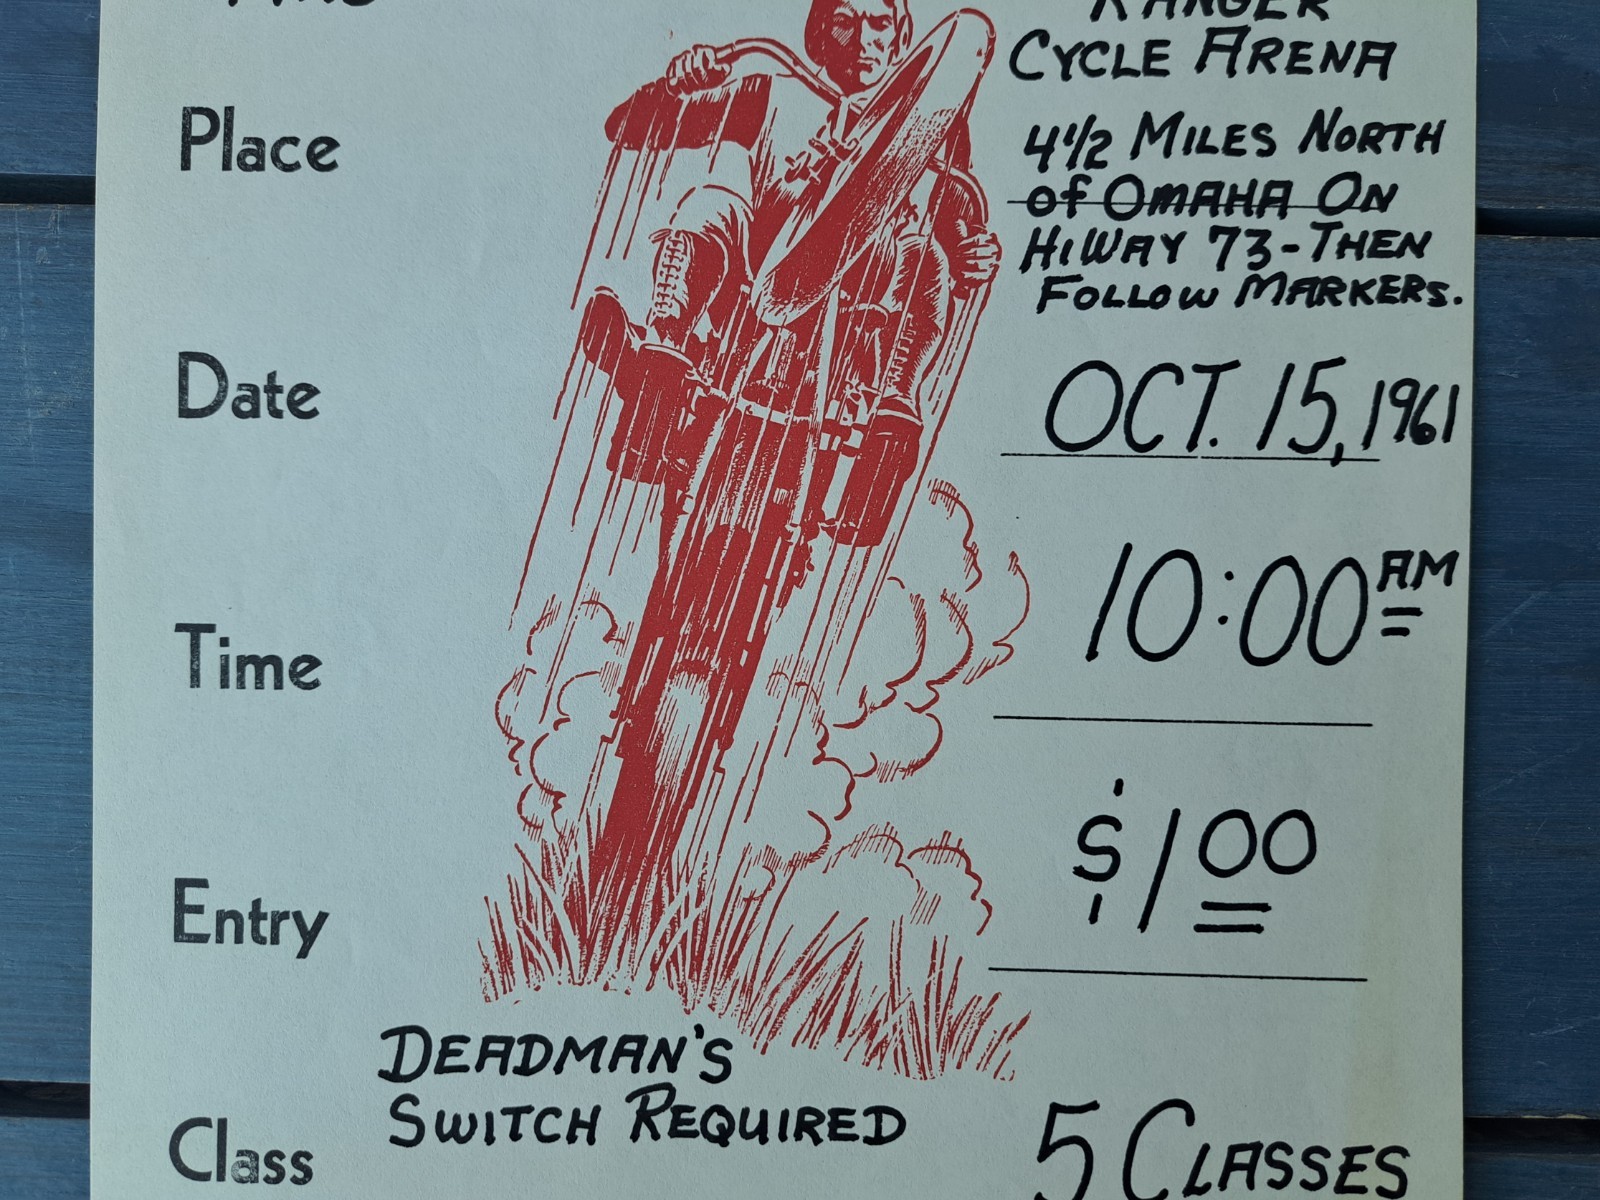 RANGER
CYCLE ARENA
Place
4 1/2 MILES NORTH
of OMAHA ON
HiWAY 73-THEN
FOLLOW MARKERS.
Date
OCT. 15, 1961
Time
10:00 AM
Entry
$1 00
DEADMAN'S
SWITCH REQUIRED
Class
5 CLASSES